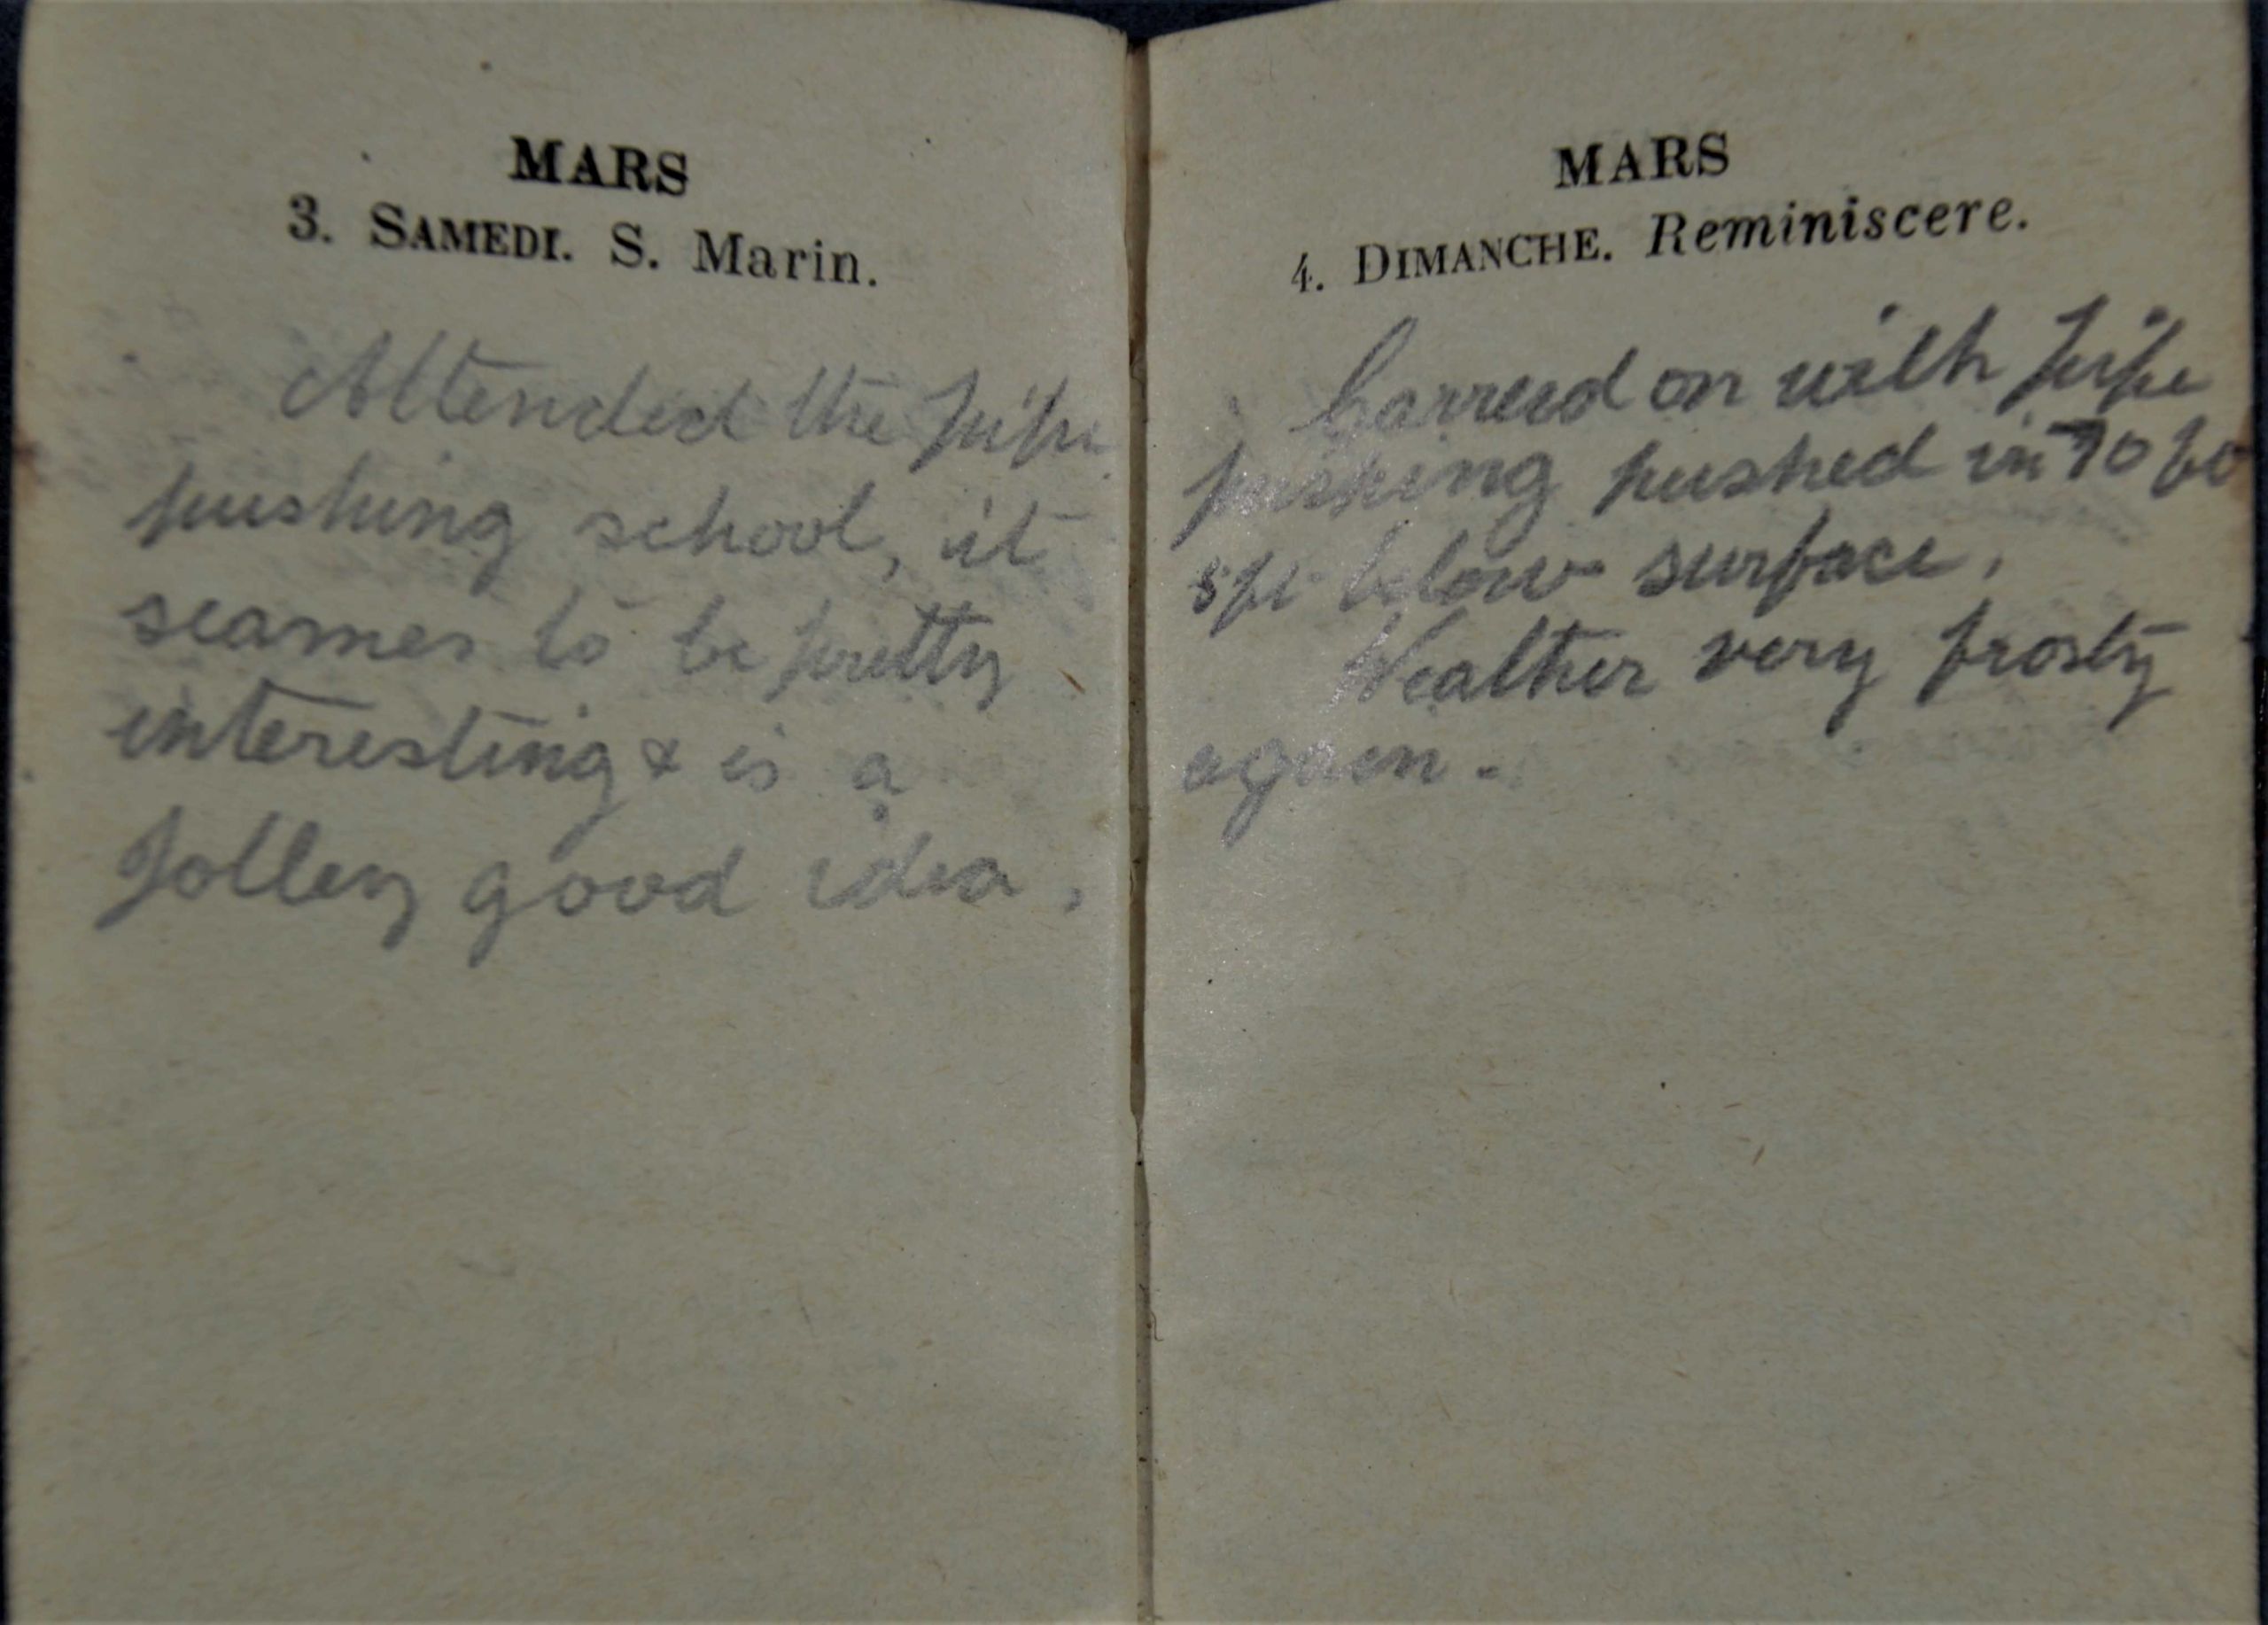 MARS
3. SAMEDI. S. Marin.
Attended the pipe
pushing school, it
seames to be pretty
interesting & is a
Jolley good idea,
MARS
4. DIMANCHE. Reminiscere.
Carreid on with pipe
pushing pushed in 70 ft
5ft below surface,
Weather very frosty
again -